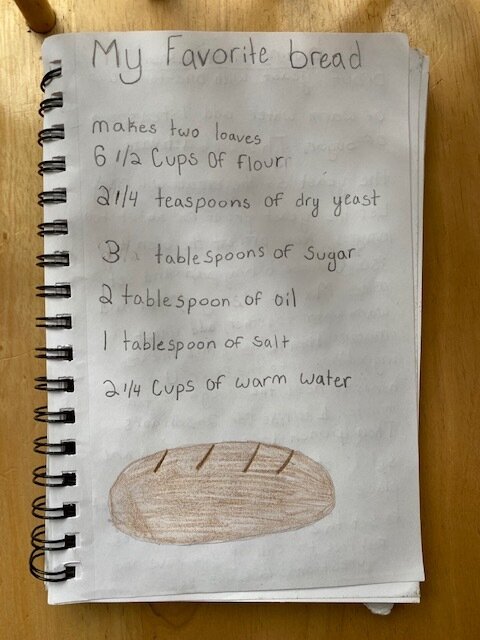 My Favorite bread
makes two loaves
6 1/2 Cups of flour
2 1/4 teaspoons of dry yeast
3 tablespoons of sugar
2 tablespoon of oil
1 tablespoon of salt
2 1/4 Cups of warm water